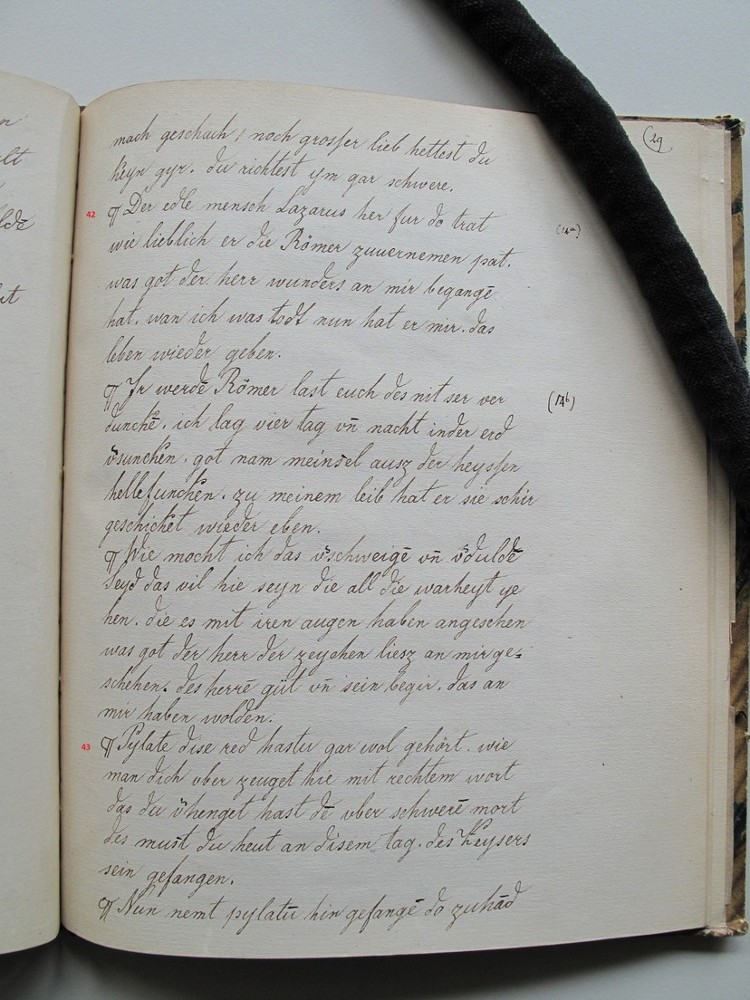 (29
mach geschach / noch grosser lieb hettest du
keyn gyr. du richtest ym gar schwere.
42 ¶ Der edle mensch Lazarus her fur do trat
wie lieblich er die Römer zuuernemen pat.
was got der herr wunders an mir begangē
hat. wan ich was todt nun hat er mir. das
leben wieder geben.
¶ Ir werdē Römer last euch des nit ser ver (14b)
dunckē. ich lag vier tag vn̄ nacht inder erd
v̄suncken. got nam mein sel ausz der heyssen
hellefuncken. zu meinem leib hat er sie schir
geschicket wieder eben.
¶ Wie mocht ich das v̄schweigē vn̄ v̄duldē
Seyd das vil hie seyn die all die warheyt ye
hen. die es mit iren augen haben angesehen
was got der herr der zeychen liesz an mir ge=
schehen. des herrē güt vn̄ sein begir. das an
mir haben wolden.
43 ¶ Pylate dise red hastu gar wol gehört. wie
man dich vber zeuget hie mit rechtem wort
das du v̄henget hast dē vber schwerē mort
des must du heut an disem tag. des Keysers
sein gefangen.
¶ Nun nemt pylatū hin gefangē do zuhād